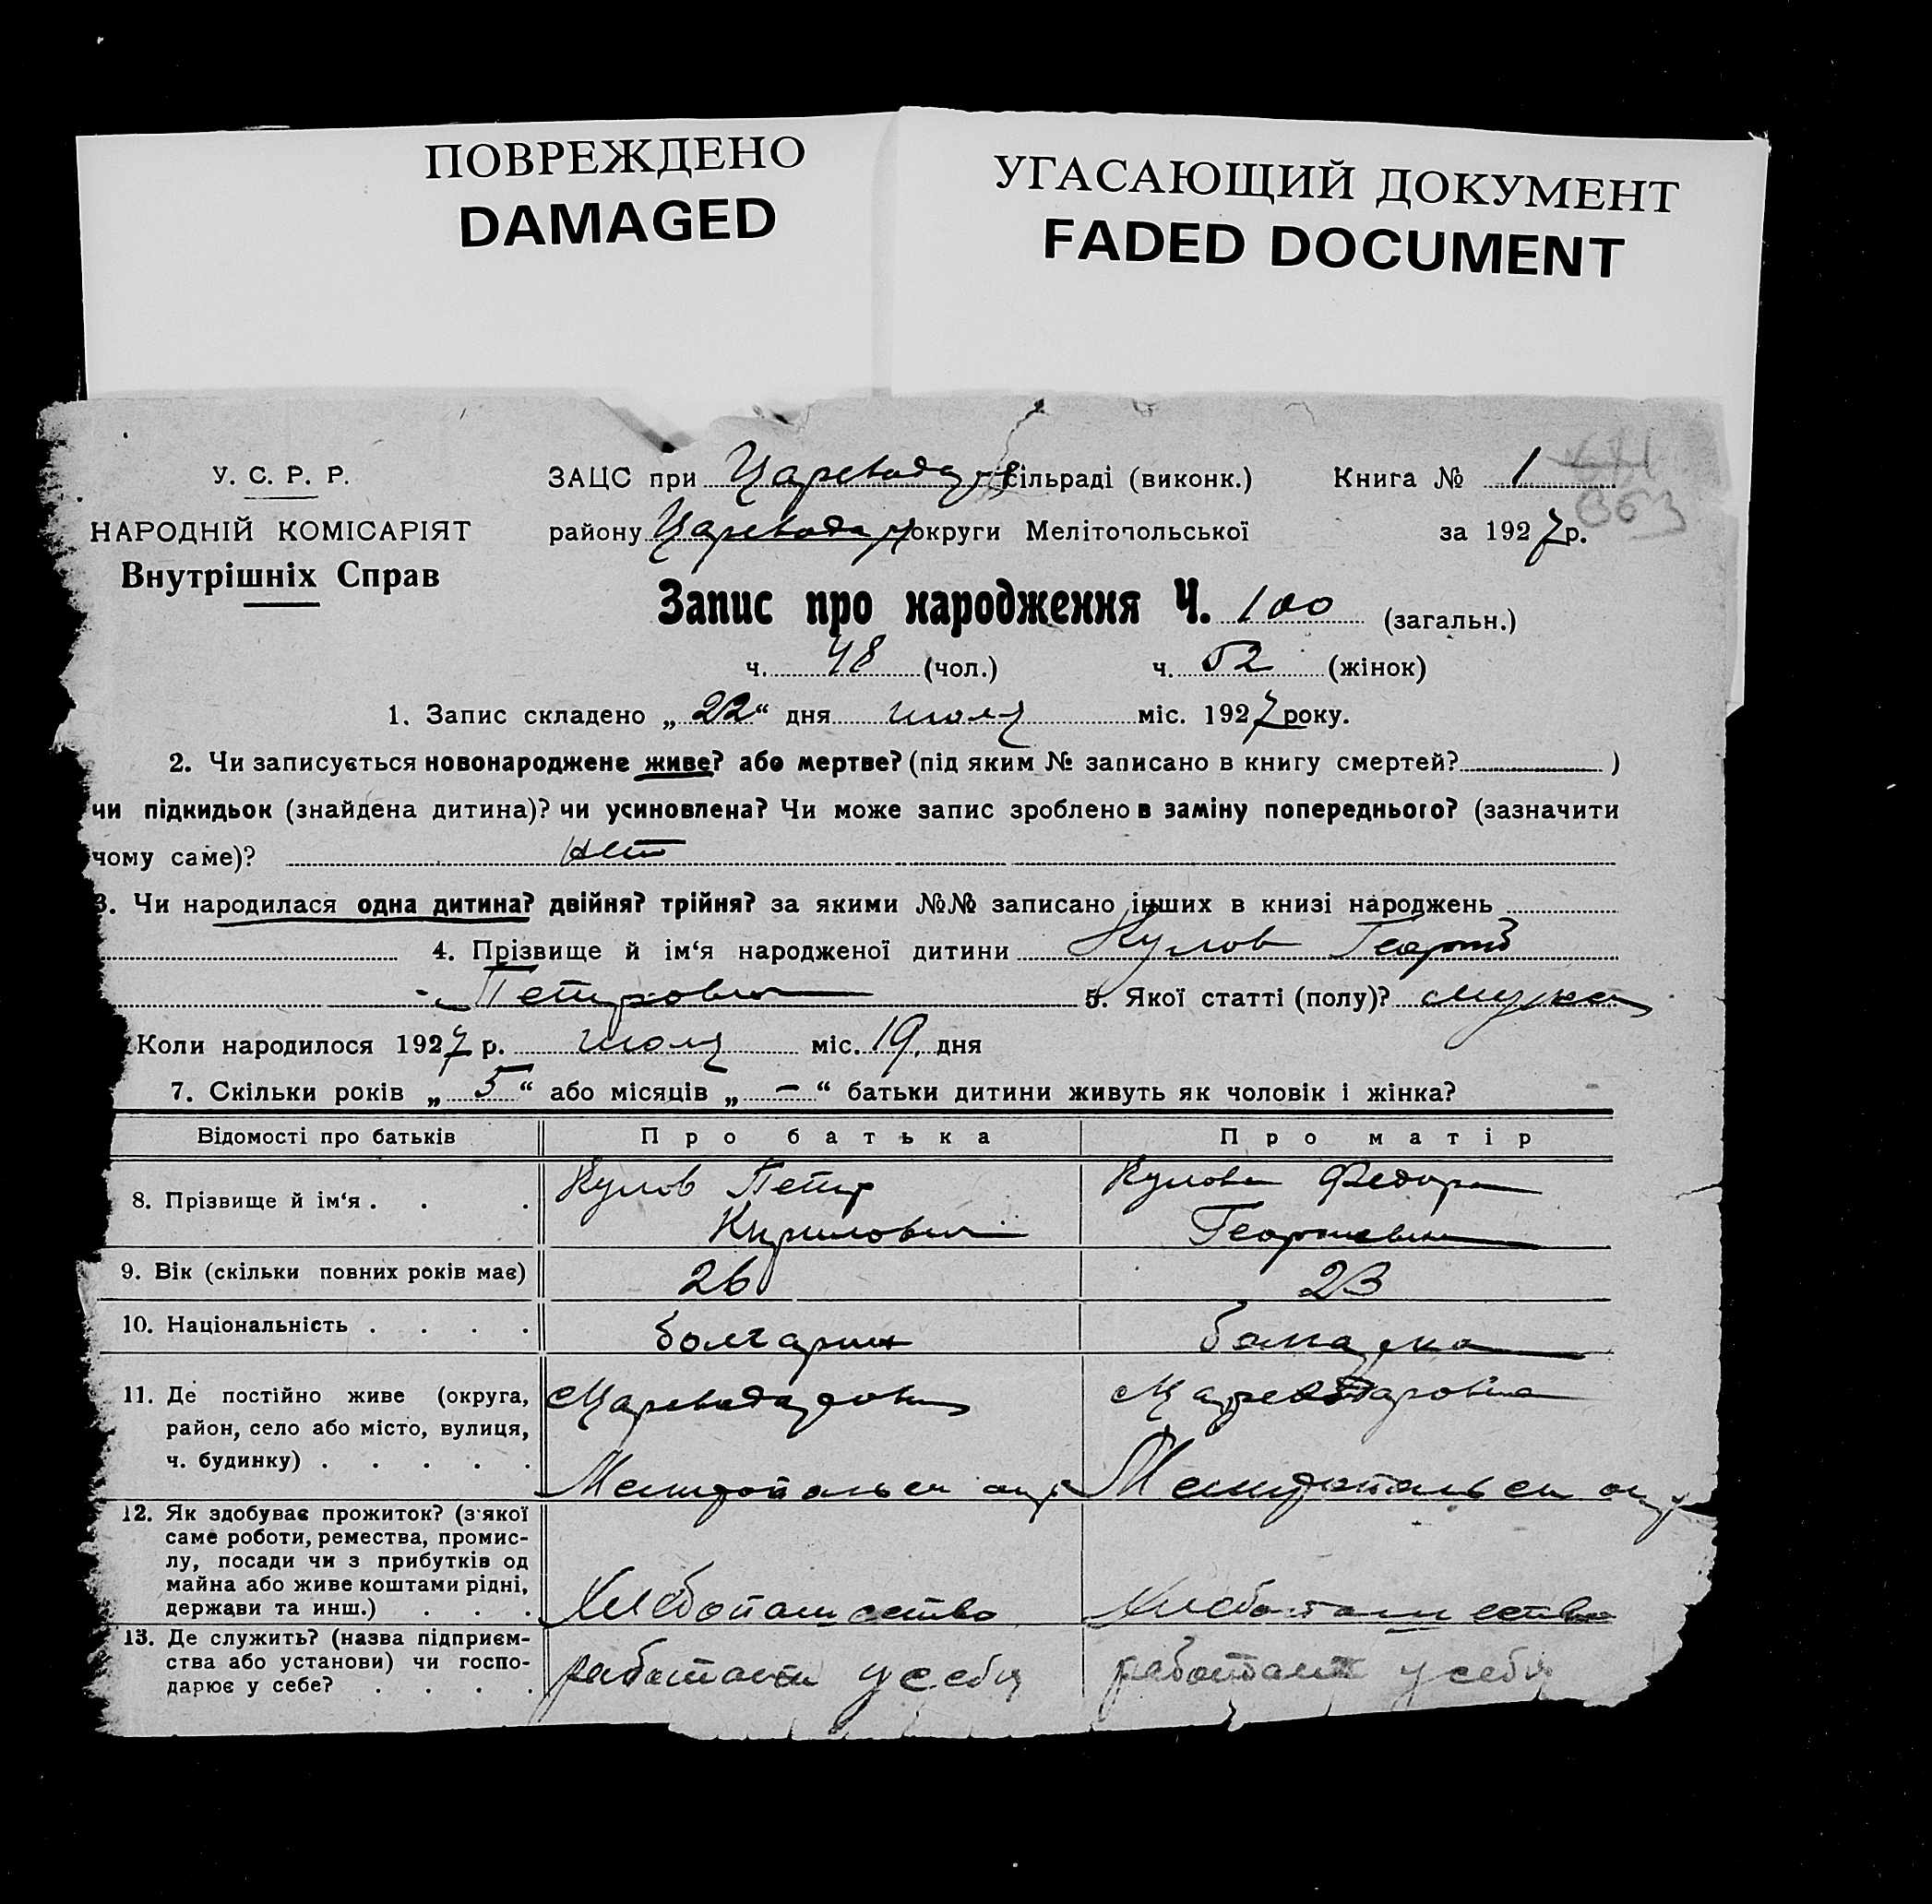 ПОВРЕЖДЕНО
DAMAGED
УГАСАЮЩИЙ ДОКУМЕНТ
FADED DOCUMENT
У. С. Р. Р.
НАРОДНІЙ КОМІСАРІЯТ
Внутрішніх Справ
ЗАЦС при Царевода сільраді (виконк.) Книга № 1
району Царевода округи Мелітопольської за 1927 р.
363
Запис про народження Ч. 100 (загальн.)
ч. 48 (чол.) ч. 52 (жінок)
1. Запис складено „22“ дня июля міс. 1927 року.
2. Чи записується новонароджене живе? або мертве? (під яким № записано в книгу смертей? )
чи підкидьок (знайдена дитина)? чи усиновлена? Чи може запис зроблено в заміну попереднього? (зазначити
чому саме)? нет
3. Чи народилася одна дитина? двійня? трійня? за якими №№ записано інших в книзі народжень
4. Прізвище й ім‘я народженої дитини Кулов Георгий
Петрович 5. Якої статті (полу)? мужск
Коли народилося 1927 р. июля міс. 19 дня
7. Скільки років „5“ або місяців „–“ батьки дитини живуть як чоловік і жінка?
Відомості про батьків Про батька Про матір
8. Прізвище й ім‘я . . . Кулов Петр Кулова Федора
Кирилович Георгиевна
9. Вік (скільки повних років має) 26 23
10. Національність . . . . болгарин болгарка
11. Де постійно живе (округа,
район, село або місто, вулиця,
ч. будинку) . . . . .
с Царевадаровка с Царевадаровка
Мелитопольск окр Мелитопольск окр
12. Як здобуває прожиток? (з'якої
саме роботи, ремества, промис-
лу, посади чи з прибутків од
майна або живе коштами рідні,
держави та инш.) . . .
Хлебопашество Хлебопашество
13. Де служить? (назва підприєм-
ства або установи) чи госпо-
дарює у себе? . . . .
работает у себя работает у себя